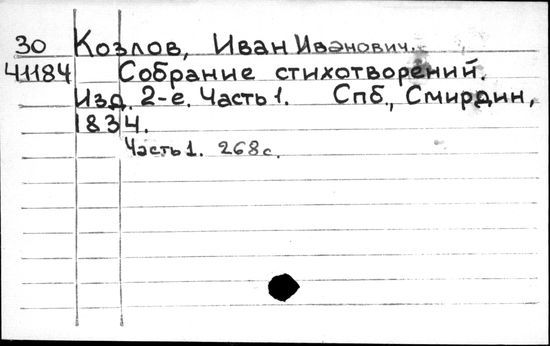 30 Козлов, Иван Иванович.
41184 Собрание стихотворений.
Изд. 2-е. Часть 1. Спб., Смирдин,
1834.
Часть 1. 268 с.